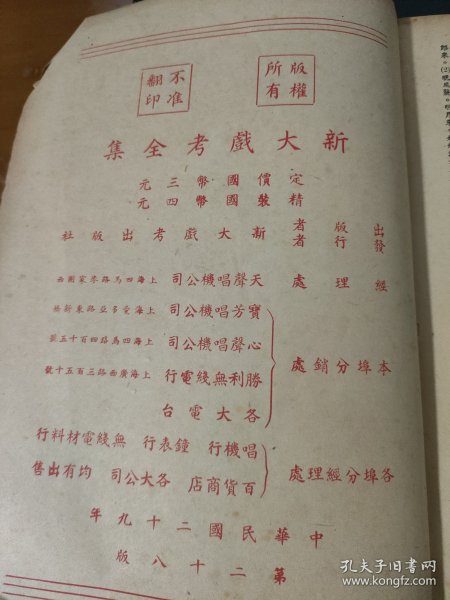 版權所有
不准翻印
新大戲考全集
定價國幣三元
精裝國幣四元
出版者
發行者
新大戲考出版社
經理處
天聲唱機公司 上海四馬路麥家圈西
本埠分銷處
寶芳唱機公司 上海愛多亞路東新橋
心聲唱機公司 上海四馬路四百十五號
勝利無綫電行 上海廣西路三百五十號
各大電台
各埠分經理處
唱機行 鐘表行 無綫電材料行
百貨商店 各大公司 均有出售
中華民國二十九年
第二十八版
孔夫子旧书网
www.kongfz.com